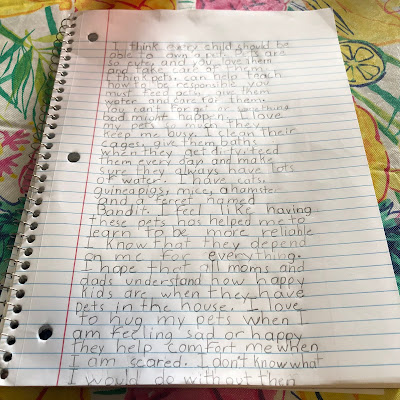 I think every child should be
able to own pets. Pets are
so cute, and you love them
and take care of them.
I think pets can help teach
how to be responsible. You
must feed them, give them
water, and care for them.
You can't forget or something
bad might happen. I love
my pets so much. They
keep me busy. I clean their
cages, give them baths
when they get dirty, feed
them every day and make
sure they always have lots
of water. I have cats,
guinea pigs, mice, a hamster
and a ferret named
Bandit. I feel like having
these pets has helped me to
learn to be more reliable
I know that they depend
on me for everything.
I hope that all moms and
dads understand how happy
kids are when they have
pets in the house. I love
to hug my pets when I
am feeling sad or happy
they help comfort me when
I am scared. I don't know what
I would do without them